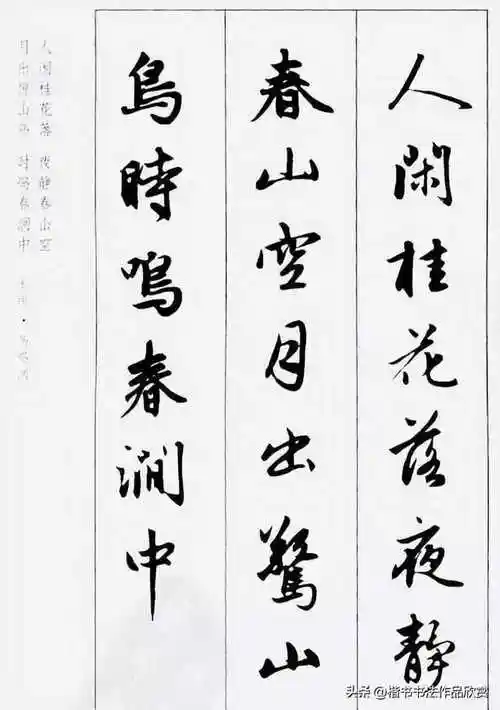 人閑桂花落夜靜
春山空月出驚山
鳥時鳴春澗中
人闲桂花落 夜静春山空
月出惊山鸟 时鸣春涧中
头条 @楷书书法作品欣赏